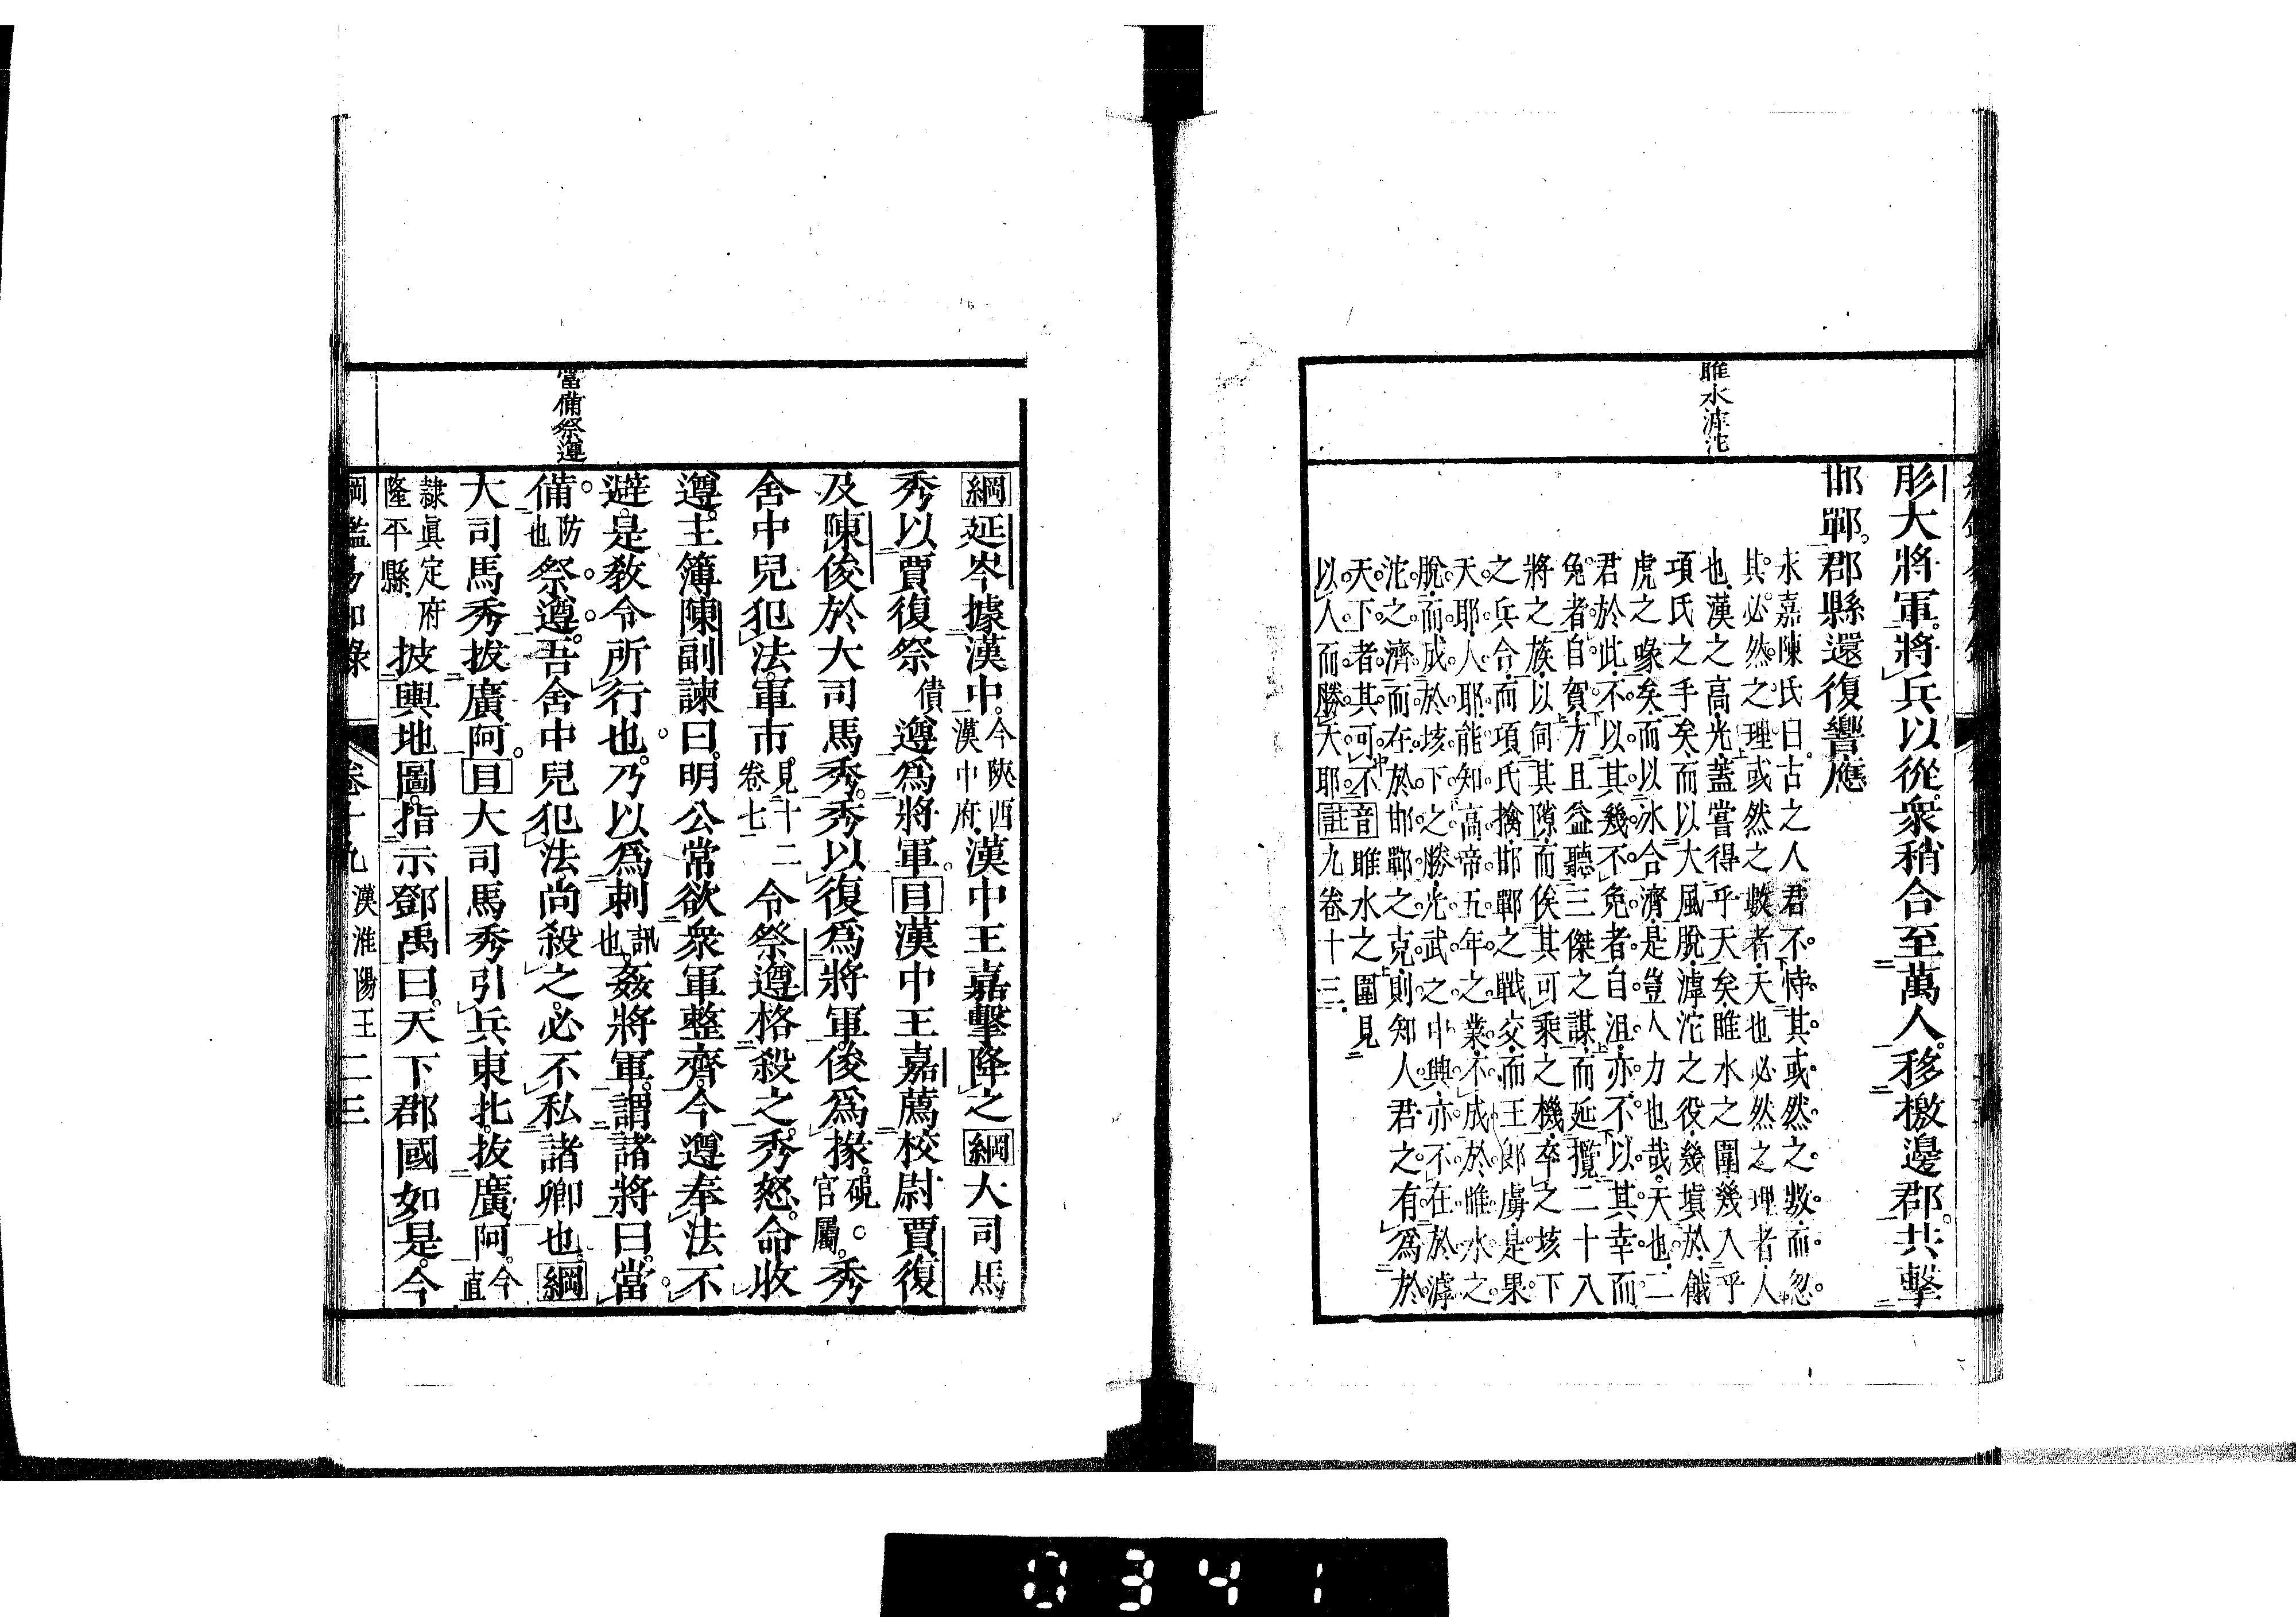 睢水滹沱
肜大將軍。將兵以從。衆稍合至萬人。移檄邊郡。共擊
邯鄲。郡縣還復響應
永嘉陳氏曰。古之人君。不恃其或然之數。而忽
其必然之理。或然之數者。天也。必然之理者。人
也。漢之高光。蓋嘗得乎天矣。睢水之圍。幾入乎
項氏之手矣。而以大風脫。滹沱之役。幾塡於餓
虎之喙矣。而以冰合濟。是豈人力也哉。天也。二
君於此。不以其幾不免者自沮。亦不以其幸而
免者自賀。方且益聽三傑之謀。而延攬二十八
將之族。以伺其隙。而俟其可乘之機。卒之垓下
之兵合。而項氏擒。邯鄲之戰交。而王郎虜。是果
天耶。人耶。能知高帝五年之業。不成於睢水之
脫。而成於垓下之勝。光武之中興。亦不在於滹
沱之濟。而在於邯鄲之克。則知人君之有爲於
天下者。其可不 音睢水之圍見
以人而勝天耶。 註九卷十三
當備祭遵
綱延岑據漢中。今陝西漢中府。漢中王嘉擊降之綱大司馬
秀以賈復祭債遵爲將軍。目漢中王嘉薦校尉賈復
及陳俊於大司馬秀。秀以復爲將軍。俊爲掾。硯。官屬。秀
舍中兒犯法。軍市見十二卷七令祭遵格殺之。秀怒。命收
遵。主簿陳副諫曰。明公常欲衆軍整齊。今遵奉法不
避。是敎令所行也。乃以爲刺訊也。姦將軍。謂諸將曰。當
備防也祭遵。吾舍中兒犯法。尚殺之。必不私諸卿也。綱
大司馬秀拔廣阿。目大司馬秀引兵東北。拔廣阿。今直
隸眞定府隆平縣。披輿地圖。指示鄧禹曰。天下郡國如是。今
綱鑑易知錄 卷十九 漢淮陽王 二三
0341